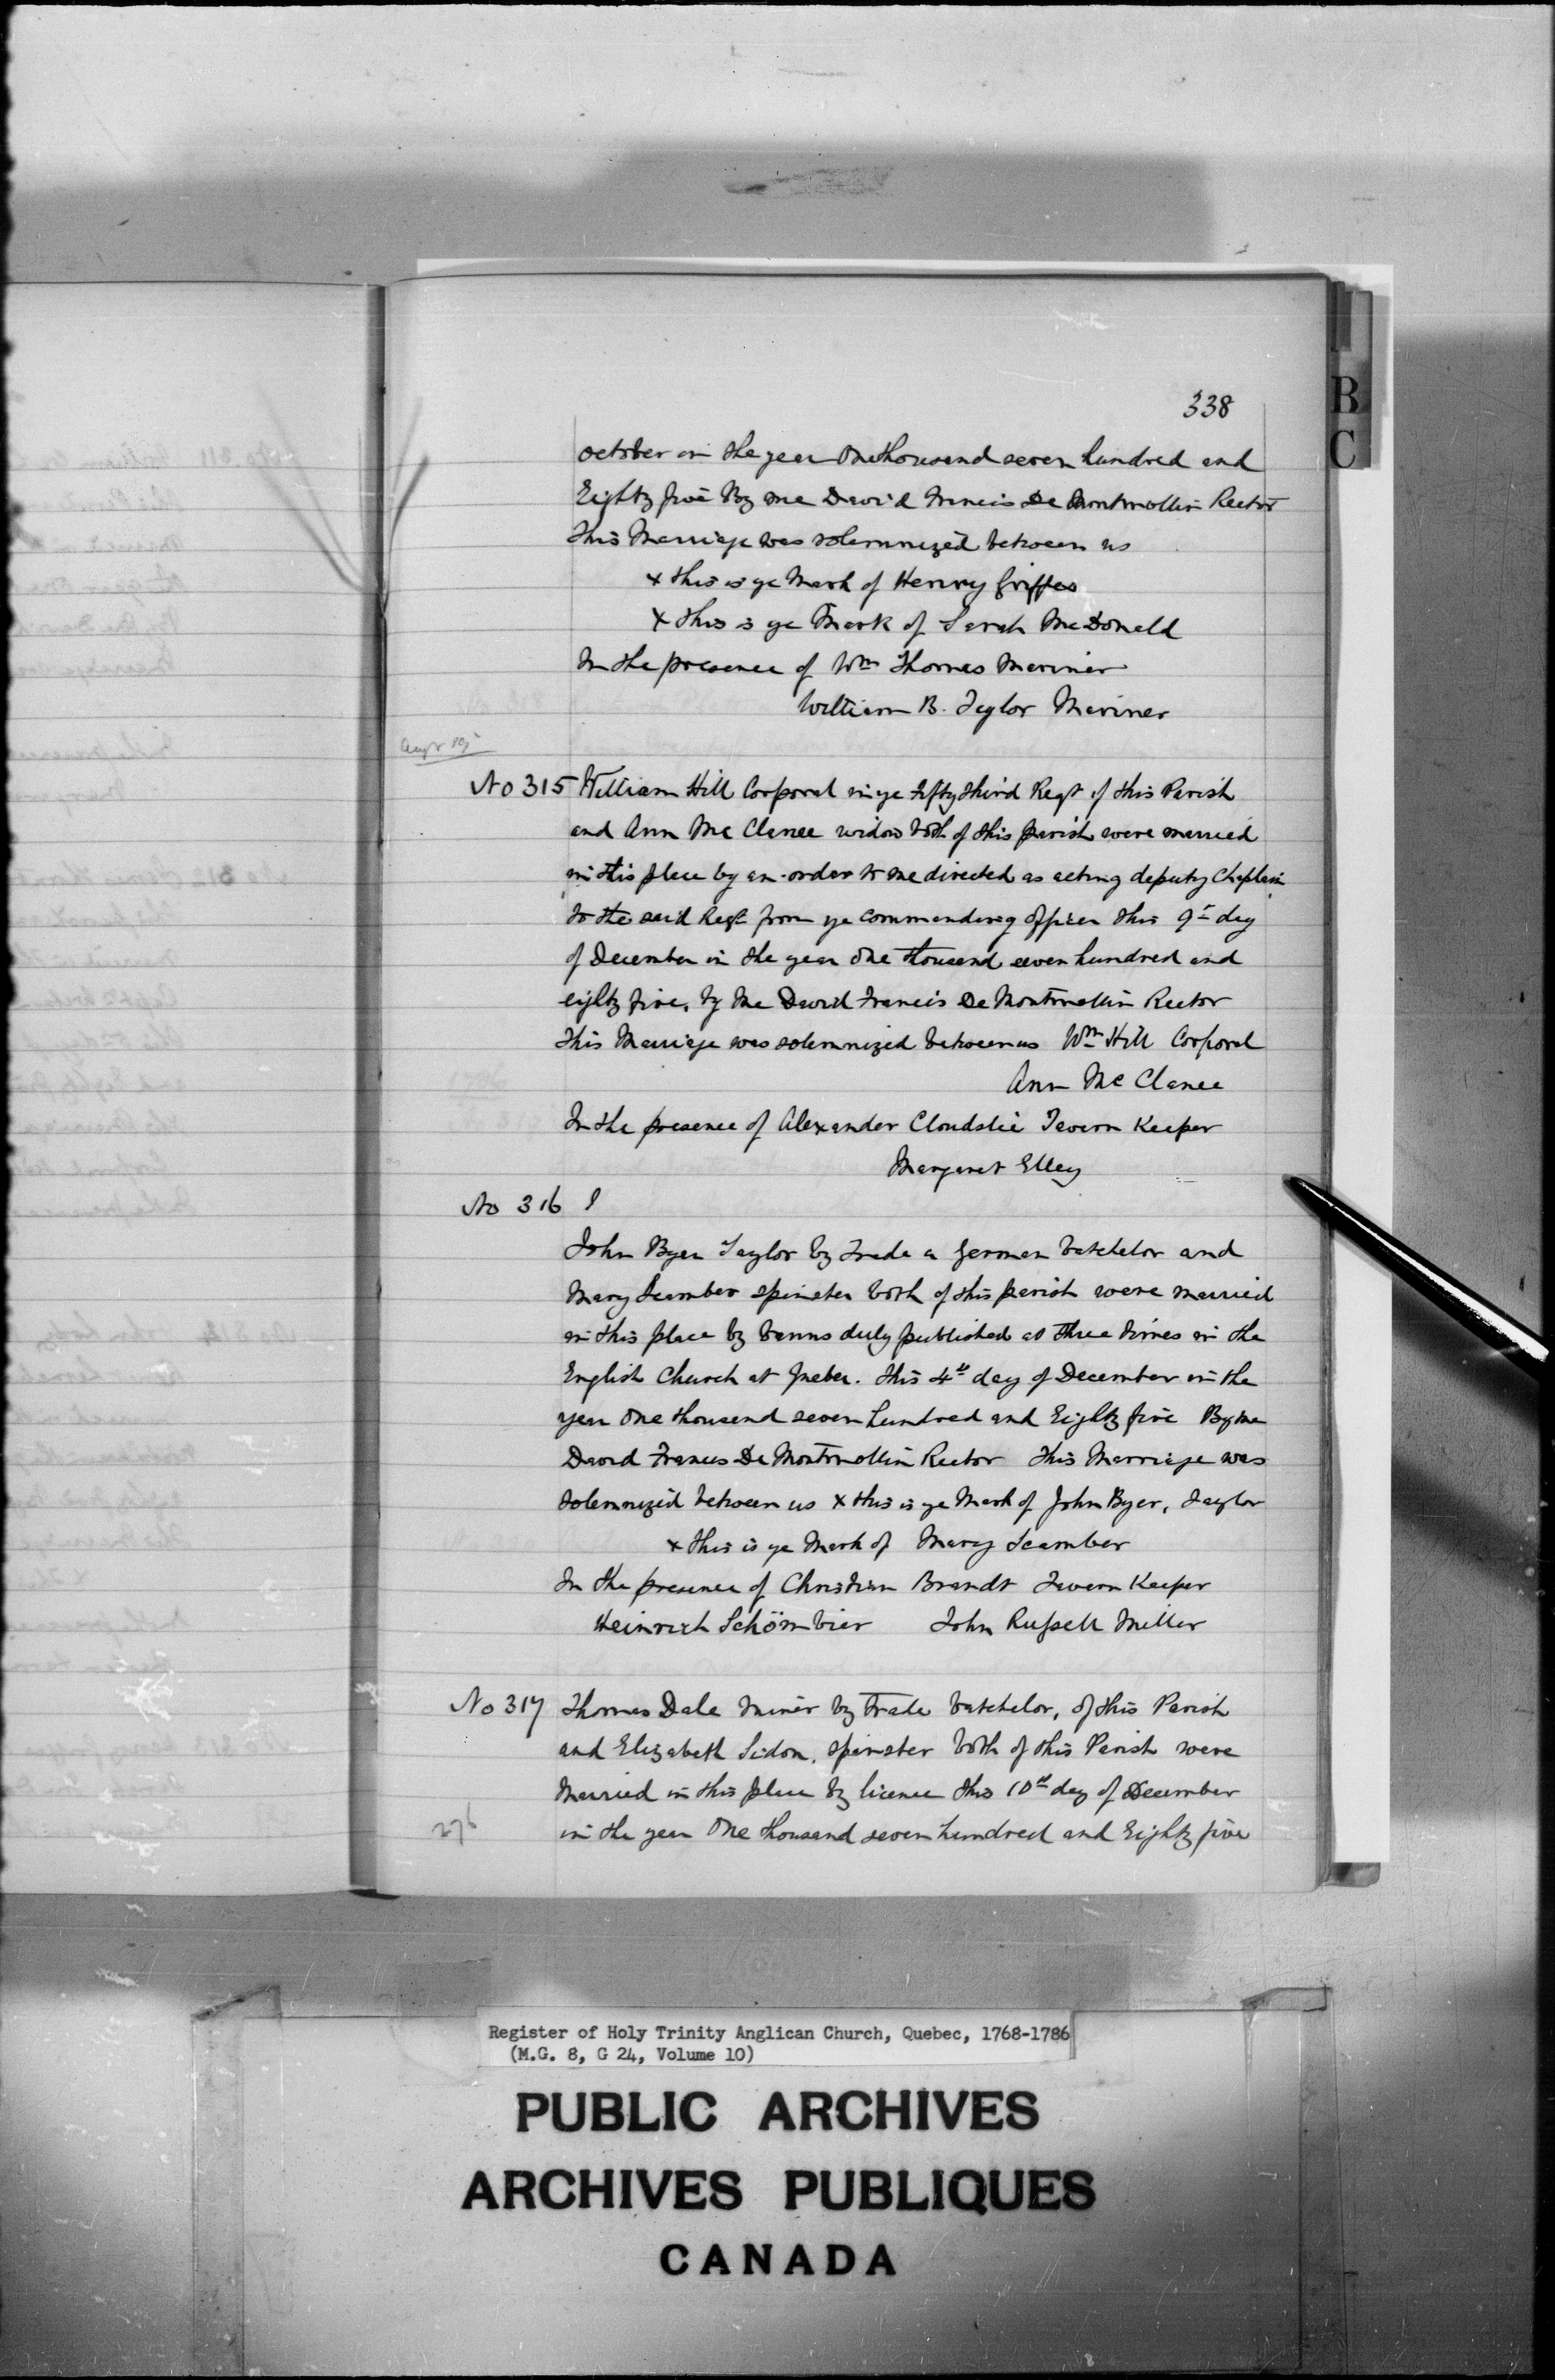 338
October in the year One thousand seven hundred and
Eighty five By me David Francis De Montmollin Rector
This Marriage was solemnized between us
x this is ye Mark of Henry Griffes
x this is ye Mark of Sarah McDonald
In the presence of Wm Thomas Mariner
William B. Taylor Mariner
No 315 William Hill Corporal in ye fifty third Regt of this Parish
and Ann Mc Clanee widow both of this parish were married
in this place by an order to me directed as acting deputy Chaplain
to the said Regt from ye Commanding officer this 9th day
of December in the year one thousand seven hundred and
eighty five, by Me David Francis De Montmollin Rector
This Marriage was solemnized between us Wm Hill Corporal
Ann Mc Clanee
In the presence of Alexander Cloudslie Tavern Keeper
Margaret Elley
No 316
John Byer Taylor by Trade a German batchelor and
Mary Scamber spinster both of this parish were married
in this place by banns duly published at three times in the
English Church at Quebec. This 4th day of December in the
year One thousand seven hundred and Eighty five By me
David Francis De Montmollin Rector This Marriage was
solemnized between us x this is ye Mark of John Byer, Taylor
x this is ye Mark of Mary Scamber
In the presence of Christian Brandt Tavern Keeper
Heinrich Schömbier John Russell Miller
No 317 Thomas Dale Miner by Trade batchelor, of this Parish
and Elizabeth Sidon, spinster both of this Parish were
Married in this place by licence this 10th day of December
276 in the year One thousand seven hundred and Eighty five
B
C
Register of Holy Trinity Anglican Church, Quebec, 1768-1786
(M.G. 8, G 24, Volume 10)
PUBLIC ARCHIVES
ARCHIVES PUBLIQUES
CANADA